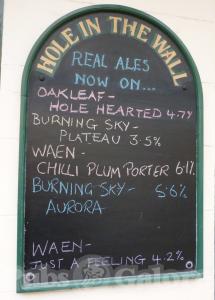 HOLE IN THE WALL
REAL ALES
NOW ON...
OAKLEAF-
HOLE HEARTED 4.7%
BURNING SKY-
PLATEAU 3.5%
WAEN-
CHILLI PLUM PORTER 6.1%
BURNING SKY- 5.6%
AURORA
WAEN-
JUST A FEELING 4.2%